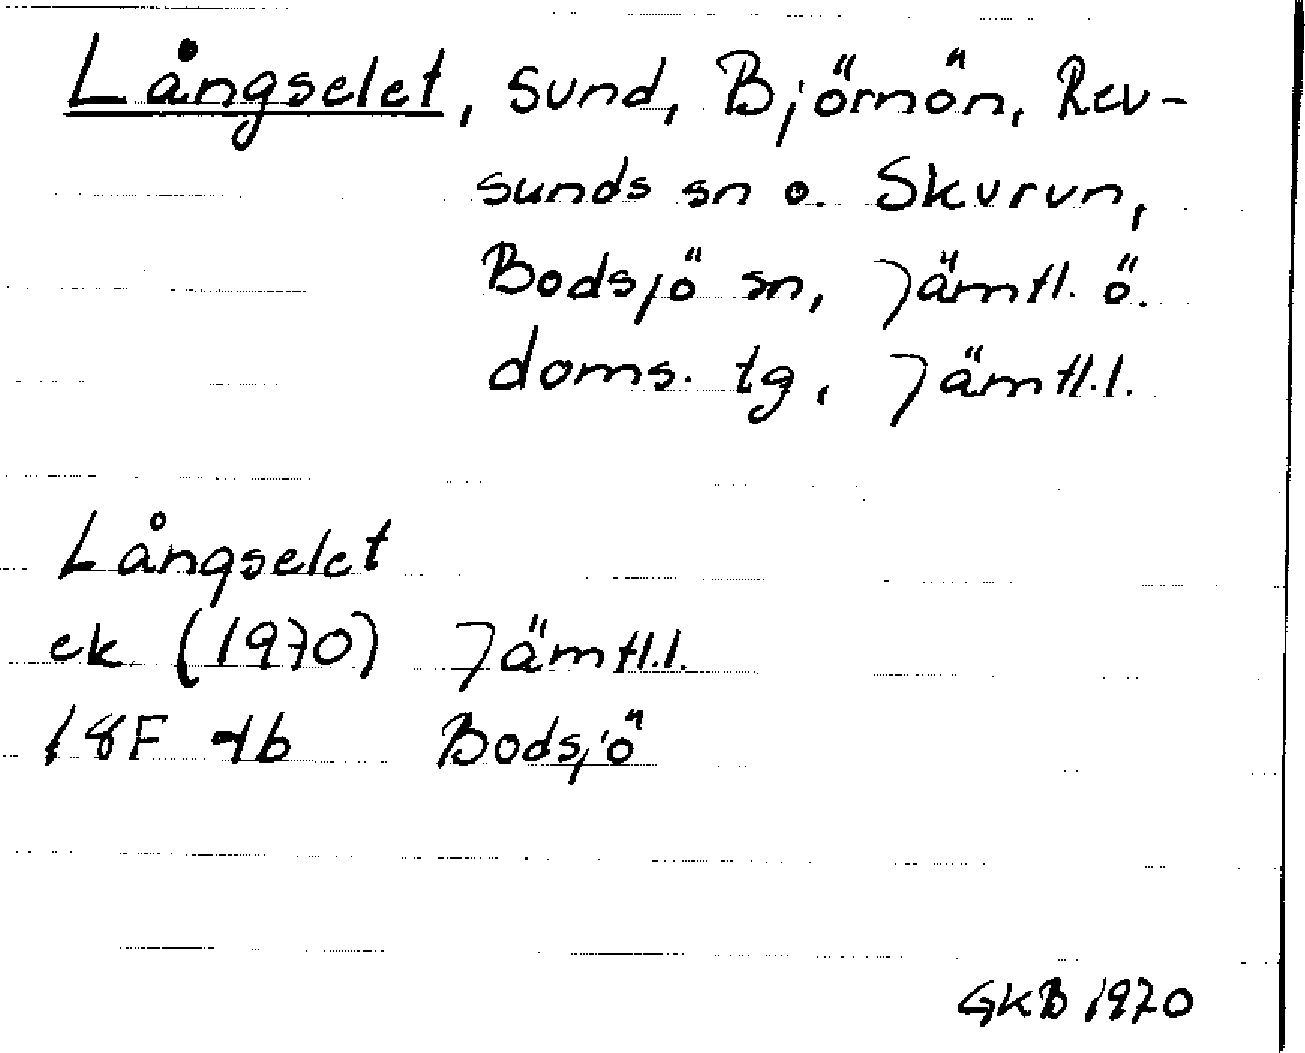 Långselet, sund, Björnön, Rev-
sunds sn o. Skurun,
Bodsjö sn, Jämtl. ö.
doms. tg, Jämtl.l.
Långselet
ek (1970) Jämtl.l.
18F 4b Bodsjö
GKB 1970